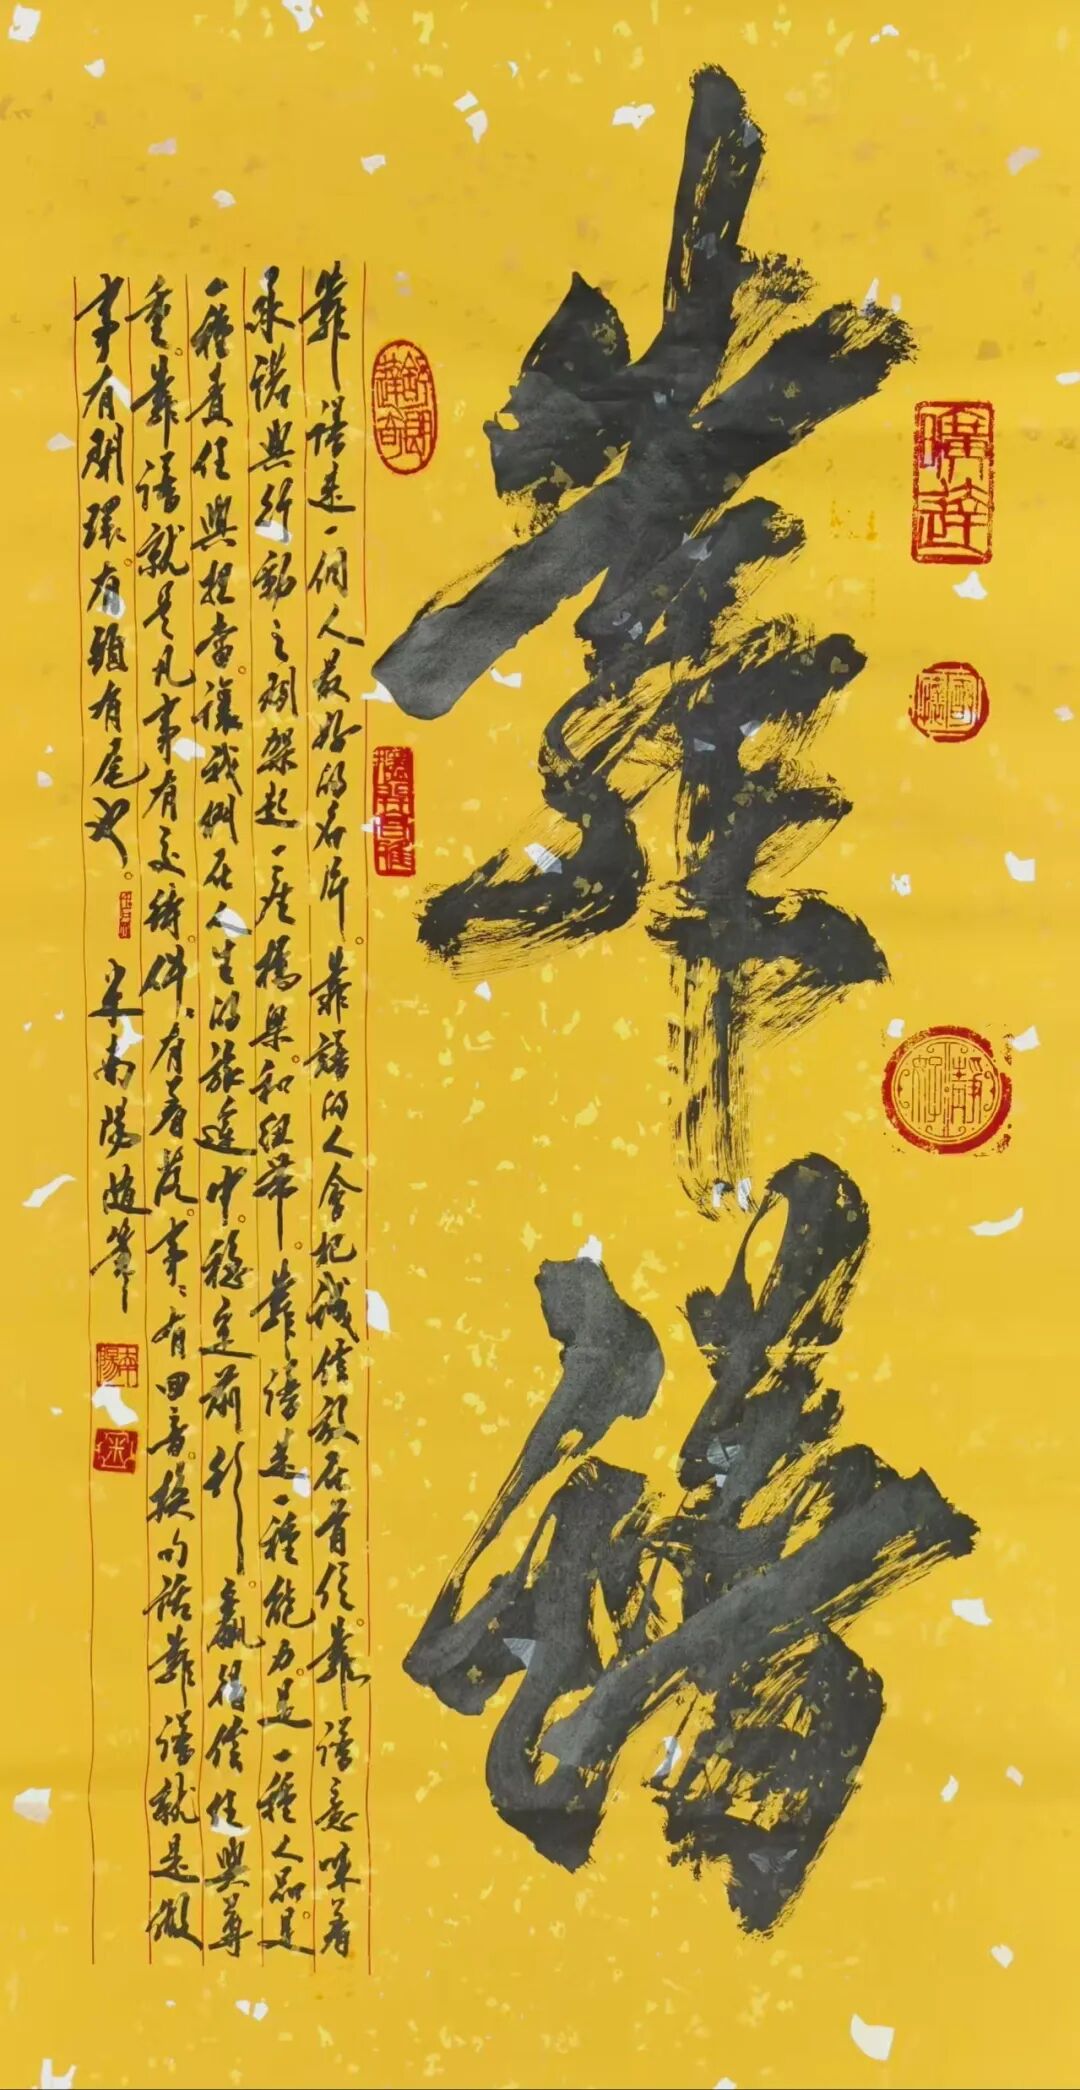 靠譜
靠譜是一個人最好的名片。靠譜的人會把誠信放在首位。靠譜意味着
承諾與行動之間架起一座橋梁和紐帶。靠譜是一種能力。是一種人品。是
一種責任與担當。讓我們在人生的旅途中。穩定前行。贏得信任與尊
重。靠譜就是凡事有交待。件件有着落。事事有回音。換句話靠譜就是做
事有閉環。有頭有尾也。
宋南陽隨筆
南陽
宋